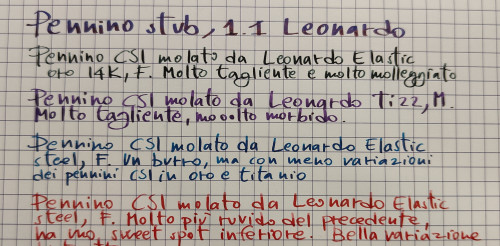 Pennino stub, 1.1 Leonardo
Pennino CSI molato da Leonardo Elastic
oro 14K, F. Molto tagliente e molto molleggiato
Pennino CSI molato da Leonardo Tizz, M.
Molto tagliente, mooolto morbido.
Pennino CSI molato da Leonardo Elastic
steel, F. Un burro, ma con meno variazioni
dei pennini CSI in oro e titanio
Pennino CSI molato da Leonardo Elastic
steel, F. Molto più ruvido del precedente,
ha uno sweet spot inferiore. Bella variazione